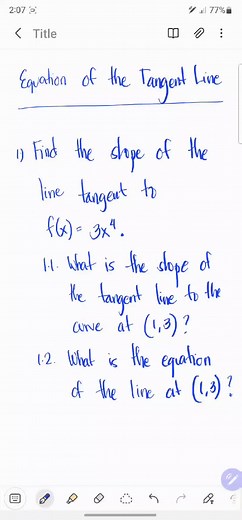 2:07
77%
Title
Equation of the Tangent Line
1) Find the slope of the
line tangent to
f(x) = 3x⁴.
1.1. What is the slope of
the tangent line to the
curve at (1,3)?
1.2. What is the equation
of the line at (1,3)?